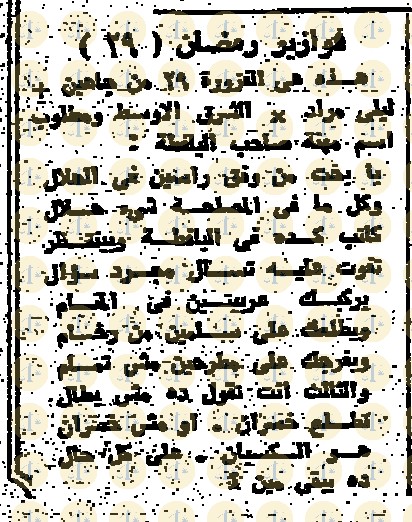 فوازير رمضان ( ٢٩ )
هـذه هى الفزورة ٢٩ من جاهين +
ليلى مراد × الشرق الاوسط ومطلوب
اسم مهنة صاحب اليافطة -
يا بخت من وفق راسين فى الحلال
وكل ما فى شوية هـلال
كاتب كـده فى اليافطـة وبينتـظر
تفوت عليـه تسـأل مجـرد سؤال
يركبـك عربيتـين فى
ويطلعك على سـلمين من رخـام
ويفرجك على مطرحين مش تمـام
والتالت انت تقول ده مش بطال
تطلـع خسران . او مش خسران
هـو الكسبان . على كل حال
ده يبقى مين ؟